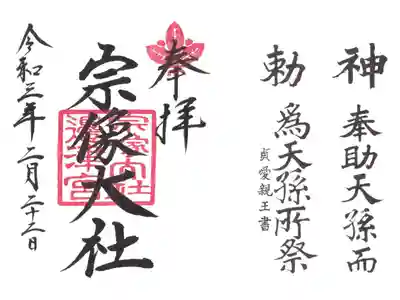 神 奉助天孫而
勅 爲天孫所祭
貞愛親王書
奉拝
宗像大社
宗像大社
邊津宮
令和三年二月二十二日